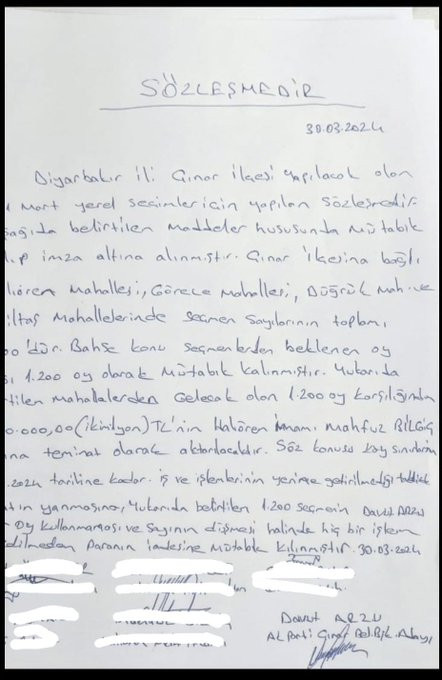 SÖZLEŞMEDİR
30.03.2024
Diyarbakır ili Çınar ilçesi yapılacak olan
Mart yerel seçimler için yapılan sözleşmedir.
belirtilen maddeler hususunda mütabık
imza altına alınmıştır. Çınar ilçesine bağlı
Mahallesi, Görece Mahallesi, Düğrük Mah. ve
Mahallelerinde seçmen sayılarının toplamı
'dür. Bahse konu seçmenlerden beklenen oy
1.200 oy olarak mütabık kalınmıştır. Yukarıda
Mahallelerden Gelecek olan 1.200 oy karşılığında
0.000,00 (ikimilyon) TL'nin Halören imamı Mahfuz BİLGİÇ
teminat olarak aktarılacaktır. Söz konusu köy sınırlarının
.2024 tarihine kadar. iş ve işlenlerinin yerine getirilmediği
yanmasına, yukarıda belirtilen 1.200 seçmenin Davut ARZU
oy kullanmaması ve sayının düşmesi halinde hiç bir işlem
paranın iadesine mütabık kılınmıştır. 30.03.2024
Davut ARZU
AK Parti Çınar Bel. Bşk. Adayı